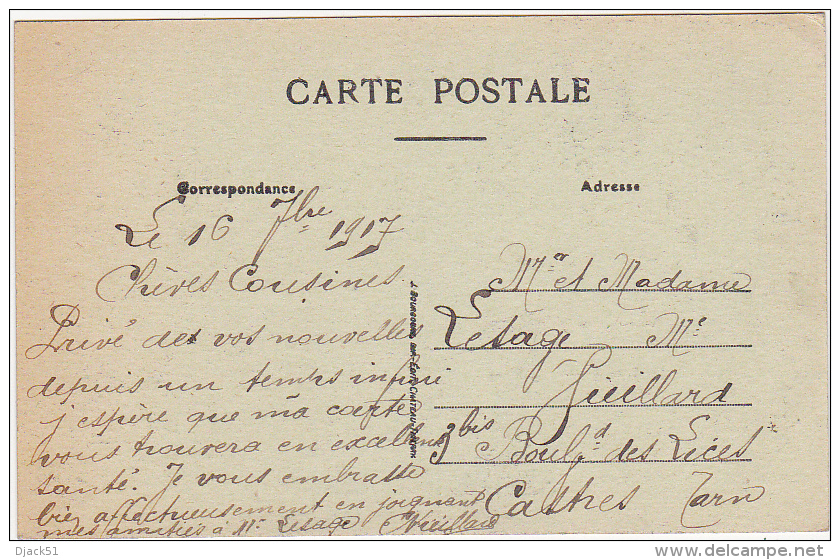 CARTE POSTALE
Correspondance
Adresse
Le 16 7bre 1917
Chères Cousines
Privé de vos nouvelles
depuis un temps infini
j'espère que ma carte
vous trouvera en excellente
santé. Je vous embrasse
bien affectueusement en joignant
mes amitiés à Mr Lesage
Mr et Madame
Lesage Me
3bis Boulvd des Lices
Castres Tarn
Djack51
www.delcampe.net